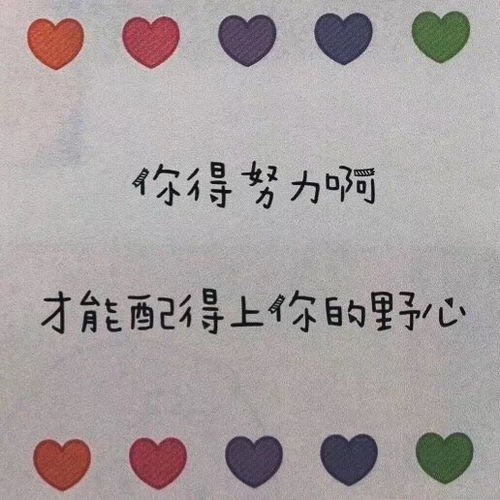 你得努力啊
才能配得上你的野心